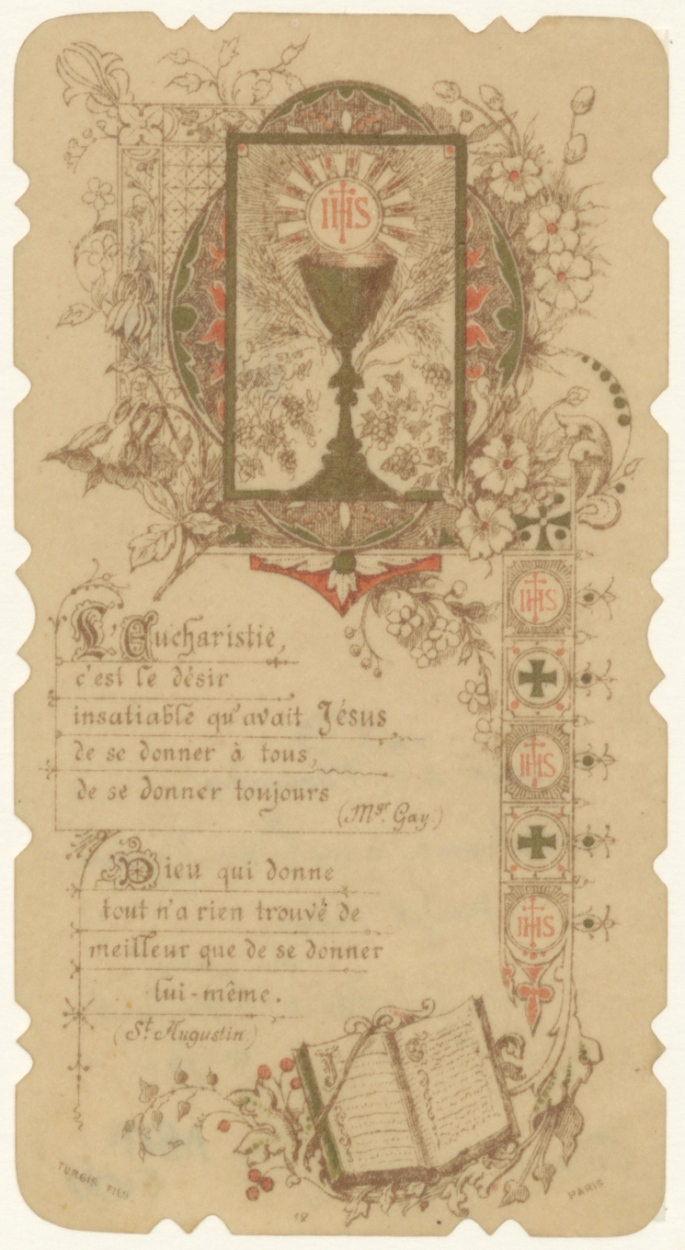 IHS
L'Eucharistie,
c'est le désir
insatiable qu'avait Jésus
de se donner à tous,
de se donner toujours
(Mgr. Gay.)
IHS
IHS
IHS
Dieu qui donne
tout n'a rien trouvé de
meilleur que de se donner
lui-même.
(St Augustin)
TURGIS FILS.
PARIS